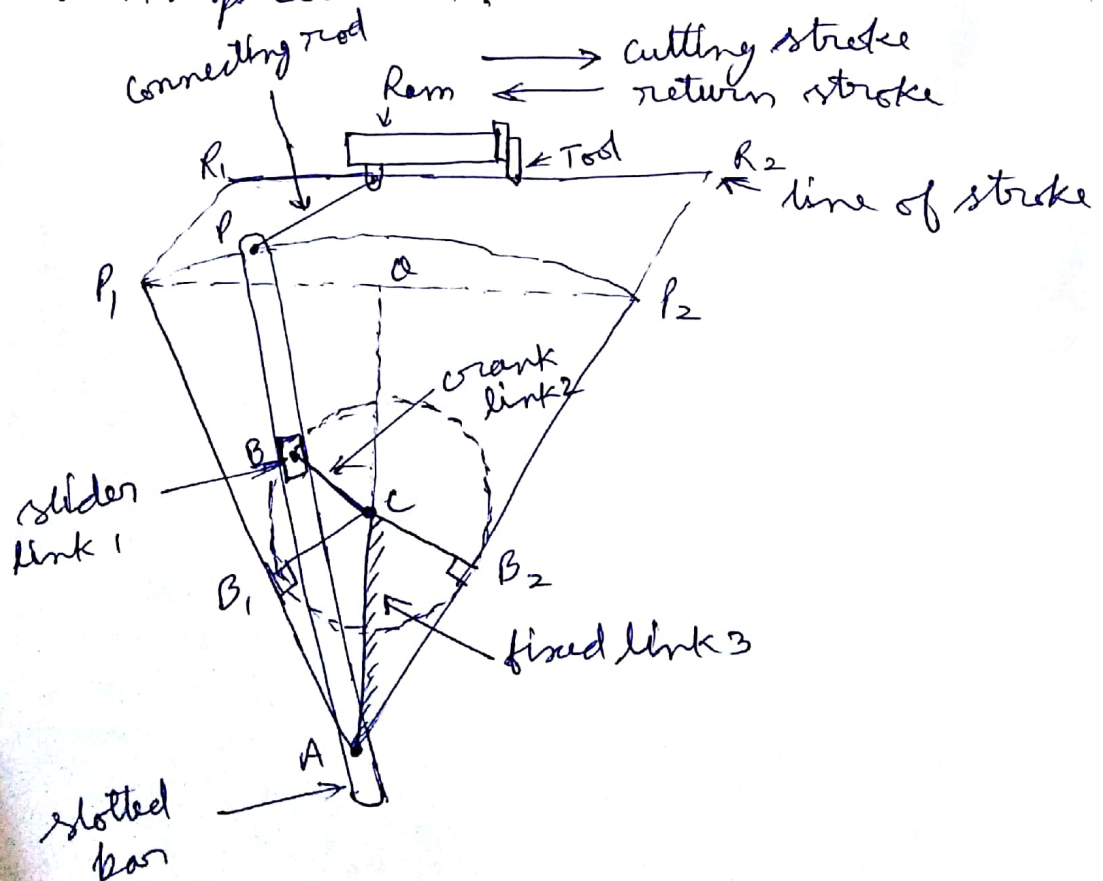 connecting rod
Ram
cutting stroke
return stroke
R1
Tool
R2
line of stroke
P
P1
Q
P2
crank
link2
B
slider
link 1
C
B1
B2
fixed link 3
A
slotted
bar